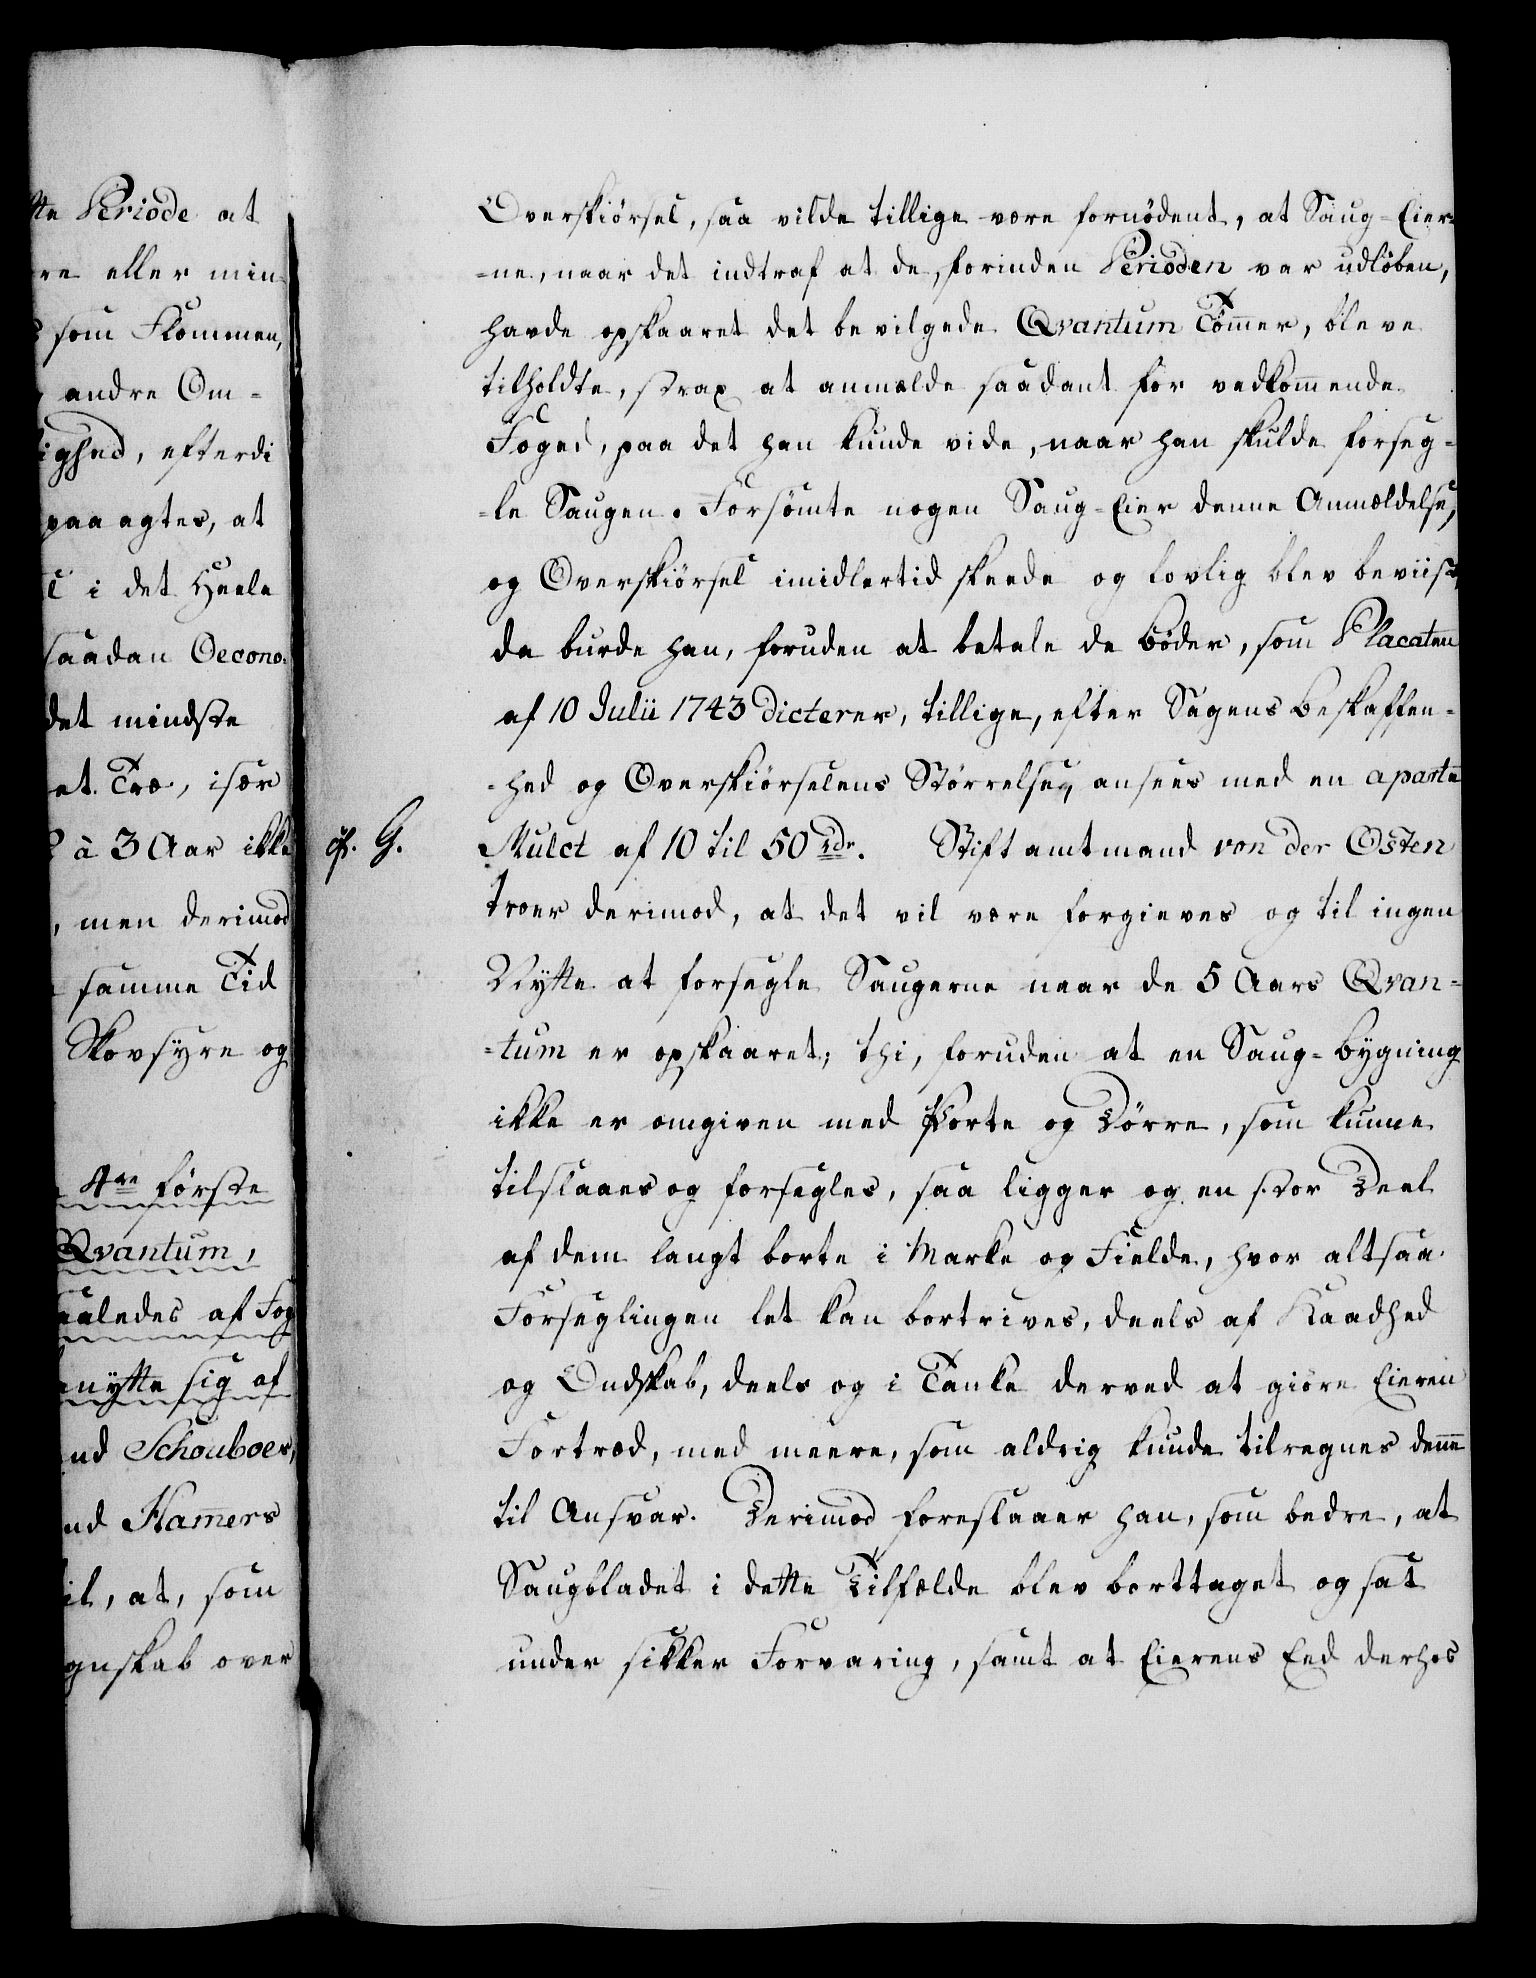 te Periode at
re eller min
som Flommen,
andre Om-
ighed, efterdi
paaagtes, at
i det Heele
saadan Oecono-
det mindste
et Træ, især
à 3 Aar ikke
, men derimod
samme Tid
Skovfyre og
4re første
Qvantum,
saaledes af Fog
nytte sig af
nd Schouboes,
nd Hamers
il, at, som
gnskab over
Overskiørsel, saa vilde tillige være fornødent, at Saug-Eier-
-ne, naar det indtraf at de, forinden Perioden var udløben,
havde opskaaret det bevilgede Qvantum Tømer, bleve
tilholdte, strax at anmælde saadant for vedkomende
Foged, paa det han kunde vide, naar han skulde forseg-
-le Saugen. Forsømte nogen Saug-Eier denne Anmældelse,
og Overskiørsel imidlertid skeede og lovlig blev beviist,
da burde han, foruden at betale de Bøder, som Placaten
af 10 Julii 1743 dicterer, tillige, efter Sagens Beskaffen-
-hed og Overskiørselens Størrelse, ansees med en aparte
cfr. G.
Mulct af 10 til 50 rdr. Stiftamtmand von der Osten
troer derimod, at det vil være forgieves og til ingen
Nytte at forsegle Saugerne naar de 5 Aars Qvan-
-tum er opskaaret; thi, foruden at en Saug-bygning
ikke er omgiven med Porte og Dørre, som kunne
tilslaaes og forsegles, saa ligger og en stor Deel
af dem langt borte i Marke og Fielde, hvor altsaa
Forseglingen let kan bortrives, deels af Kaadhed
og Ondskab, deels og i Tanke derved at giøre Eieren
Fortræd, med meere, som aldrig kunde tilregnes denne
til Ansvar. Derimod foreslaaer han, som bedre, at
Saugbladet i dette Tilfælde blev borttaget og sat
under sikker Forvaring, samt at Eierens Eed derhos